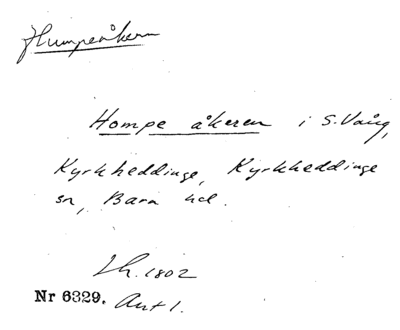 Humpeåkern
Hompe åkeren i S. Vång,
Kyrkheddinge, Kyrkheddinge
sn, Bara hd.
Lh. 1802
Nr 6329. Ant 1.